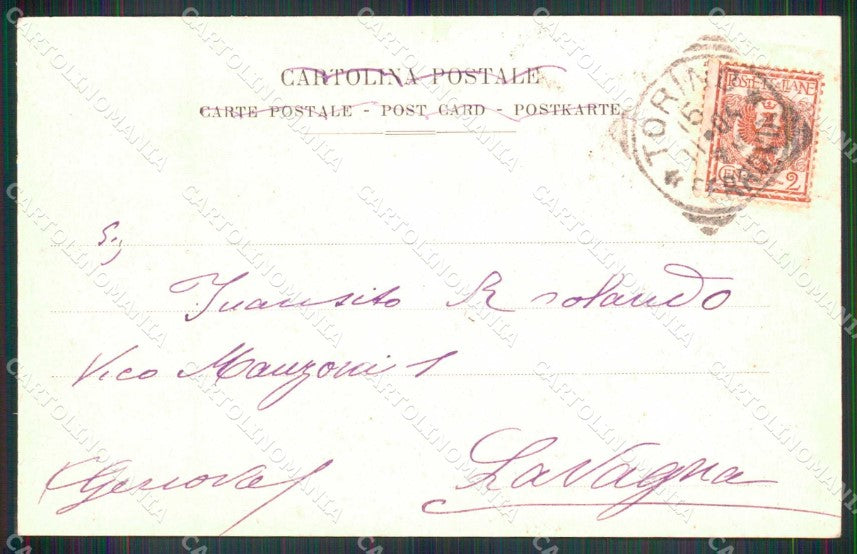 CARTOLINA POSTALE
CARTE POSTALE - POST CARD - POSTKARTE
TORINO
POSTE ITALIANE
2
S.
Rolando
Vico Manzoni 1
(Genova)
Lavagna
CARTOLINOMANIA